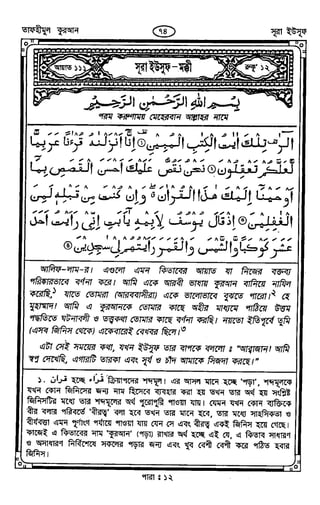 তাফহীমুল কুরআন ৭৪ সূরা ইউসুফ
আয়াত ১১১ সূরা ইউসুফ – মক্কী রুকূ' ১২
بِسْمِ اللهِ الرَّحْمٰنِ الرَّحِيْمِ
পরম করুণাময় মেহেরবান আল্লাহর নামে
الٓرٰ تِلْكَ اٰيٰتُ الْكِتٰبِ الْمُبِيْنِ ① اِنَّآ اَنْزَلْنٰهُ قُرْءٰنًا عَرَبِيًّا
لَّعَلَّكُمْ تَعْقِلُوْنَ ② نَحْنُ نَقُصُّ عَلَيْكَ اَحْسَنَ الْقَصَصِ بِمَآ
اَوْحَيْنَآ اِلَيْكَ هٰذَا الْقُرْاٰنَ وَاِنْ كُنْتَ مِنْ قَبْلِهٖ لَمِنَ
الْغٰفِلِيْنَ ③ اِذْ قَالَ يُوْسُفُ لِاَبِيْهِ يٰٓاَبَتِ اِنِّيْ رَاَيْتُ اَحَدَ
عَشَرَ كَوْكَبًا وَّالشَّمْسَ وَالْقَمَرَ رَاَيْتُهُمْ لِيْ سٰجِدِيْنَ ④
আলিফ-লাম-র। এগুলো এমন কিতাবের আয়াত যা নিজের বক্তব্য
পরিষ্কারভাবে বর্ণনা করে। আমি একে আরবী ভাষায় কুরআন বানিয়ে নাযিল
করেছি,১ যাতে তোমরা (আরববাসীরা) একে ভালোভাবে বুঝতে পারো।২ হে
মুহাম্মাদ! আমি এ কুরআনকে তোমার কাছে অহীর মাধ্যমে পাঠিয়ে উত্তম
পদ্ধতিতে ঘটনাবলী ও তত্ত্বকথা তোমার কাছে বর্ণনা করছি। নয়তো ইতিপূর্বে তুমি
(এসব জিনিস থেকে) একেবারেই বেখবর ছিলে।৩
এটা সেই সময়ের কথা, যখন ইউসুফ তার বাপকে বললো ঃ "আব্বাজান! আমি
স্বপ্ন দেখেছি, এগারটি তারকা এবং সূর্য ও চাঁদ আমাকে সিজদা করছে।"
১. قرآن হচ্ছে قرأ ক্রিয়াপদের শব্দমূল। এর আসল মানে হচ্ছে 'পড়া', শব্দমূলকে
যখন কোন জিনিসের জন্য নাম হিসেবে ব্যবহার করা হয় তখন তার অর্থ হয় সংশ্লিষ্ট
জিনিসটির মধ্যে তার শব্দমূলের অর্থ পুরোপুরি পাওয়া যায়। যেমন যখন কোন ব্যক্তিকে
বীর বলার পরিবর্তে 'বীরত্ব' বলা হবে তখন তার মানে হবে, তার মধ্যে সাহসিকতা ও
বীর্যবত্তা এমন পূর্ণাংগ পর্যায়ে পাওয়া যায় যেন সে এবং বীরত্ব একই জিনিস হয়ে গেছে।
কাজেই এ কিতাবের নাম 'কুরআন' (পড়া) রাখার অর্থ হচ্ছে এই যে, এ কিতাব সাধারণ
ও অসাধারণ নির্বিশেষে সকলের পড়ার জন্য এবং খুব বেশী বেশী করে পঠিত হবার
জিনিস।
পারা ঃ ১২